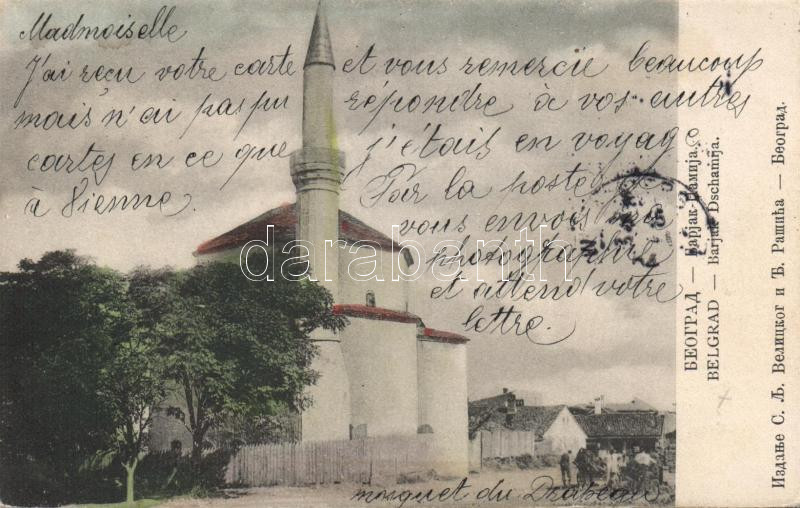 Madmoiselle
J'ai reçu votre carte et vous remercie beaucoup
mais n'ai pas pu répondre à vos autres
cartes en ce que j'étais en voyage
à Vienne. Par la poste je
vous envois une
photographie
et attend votre
lettre.
mosquet du Drapeau
darabanth.com
БЕОГРАД — Барјак-Џамија.
BELGRAD — Barjak Dschamija.
Издање С. Љ. Велицког и Ђ. Рашића — Београд.